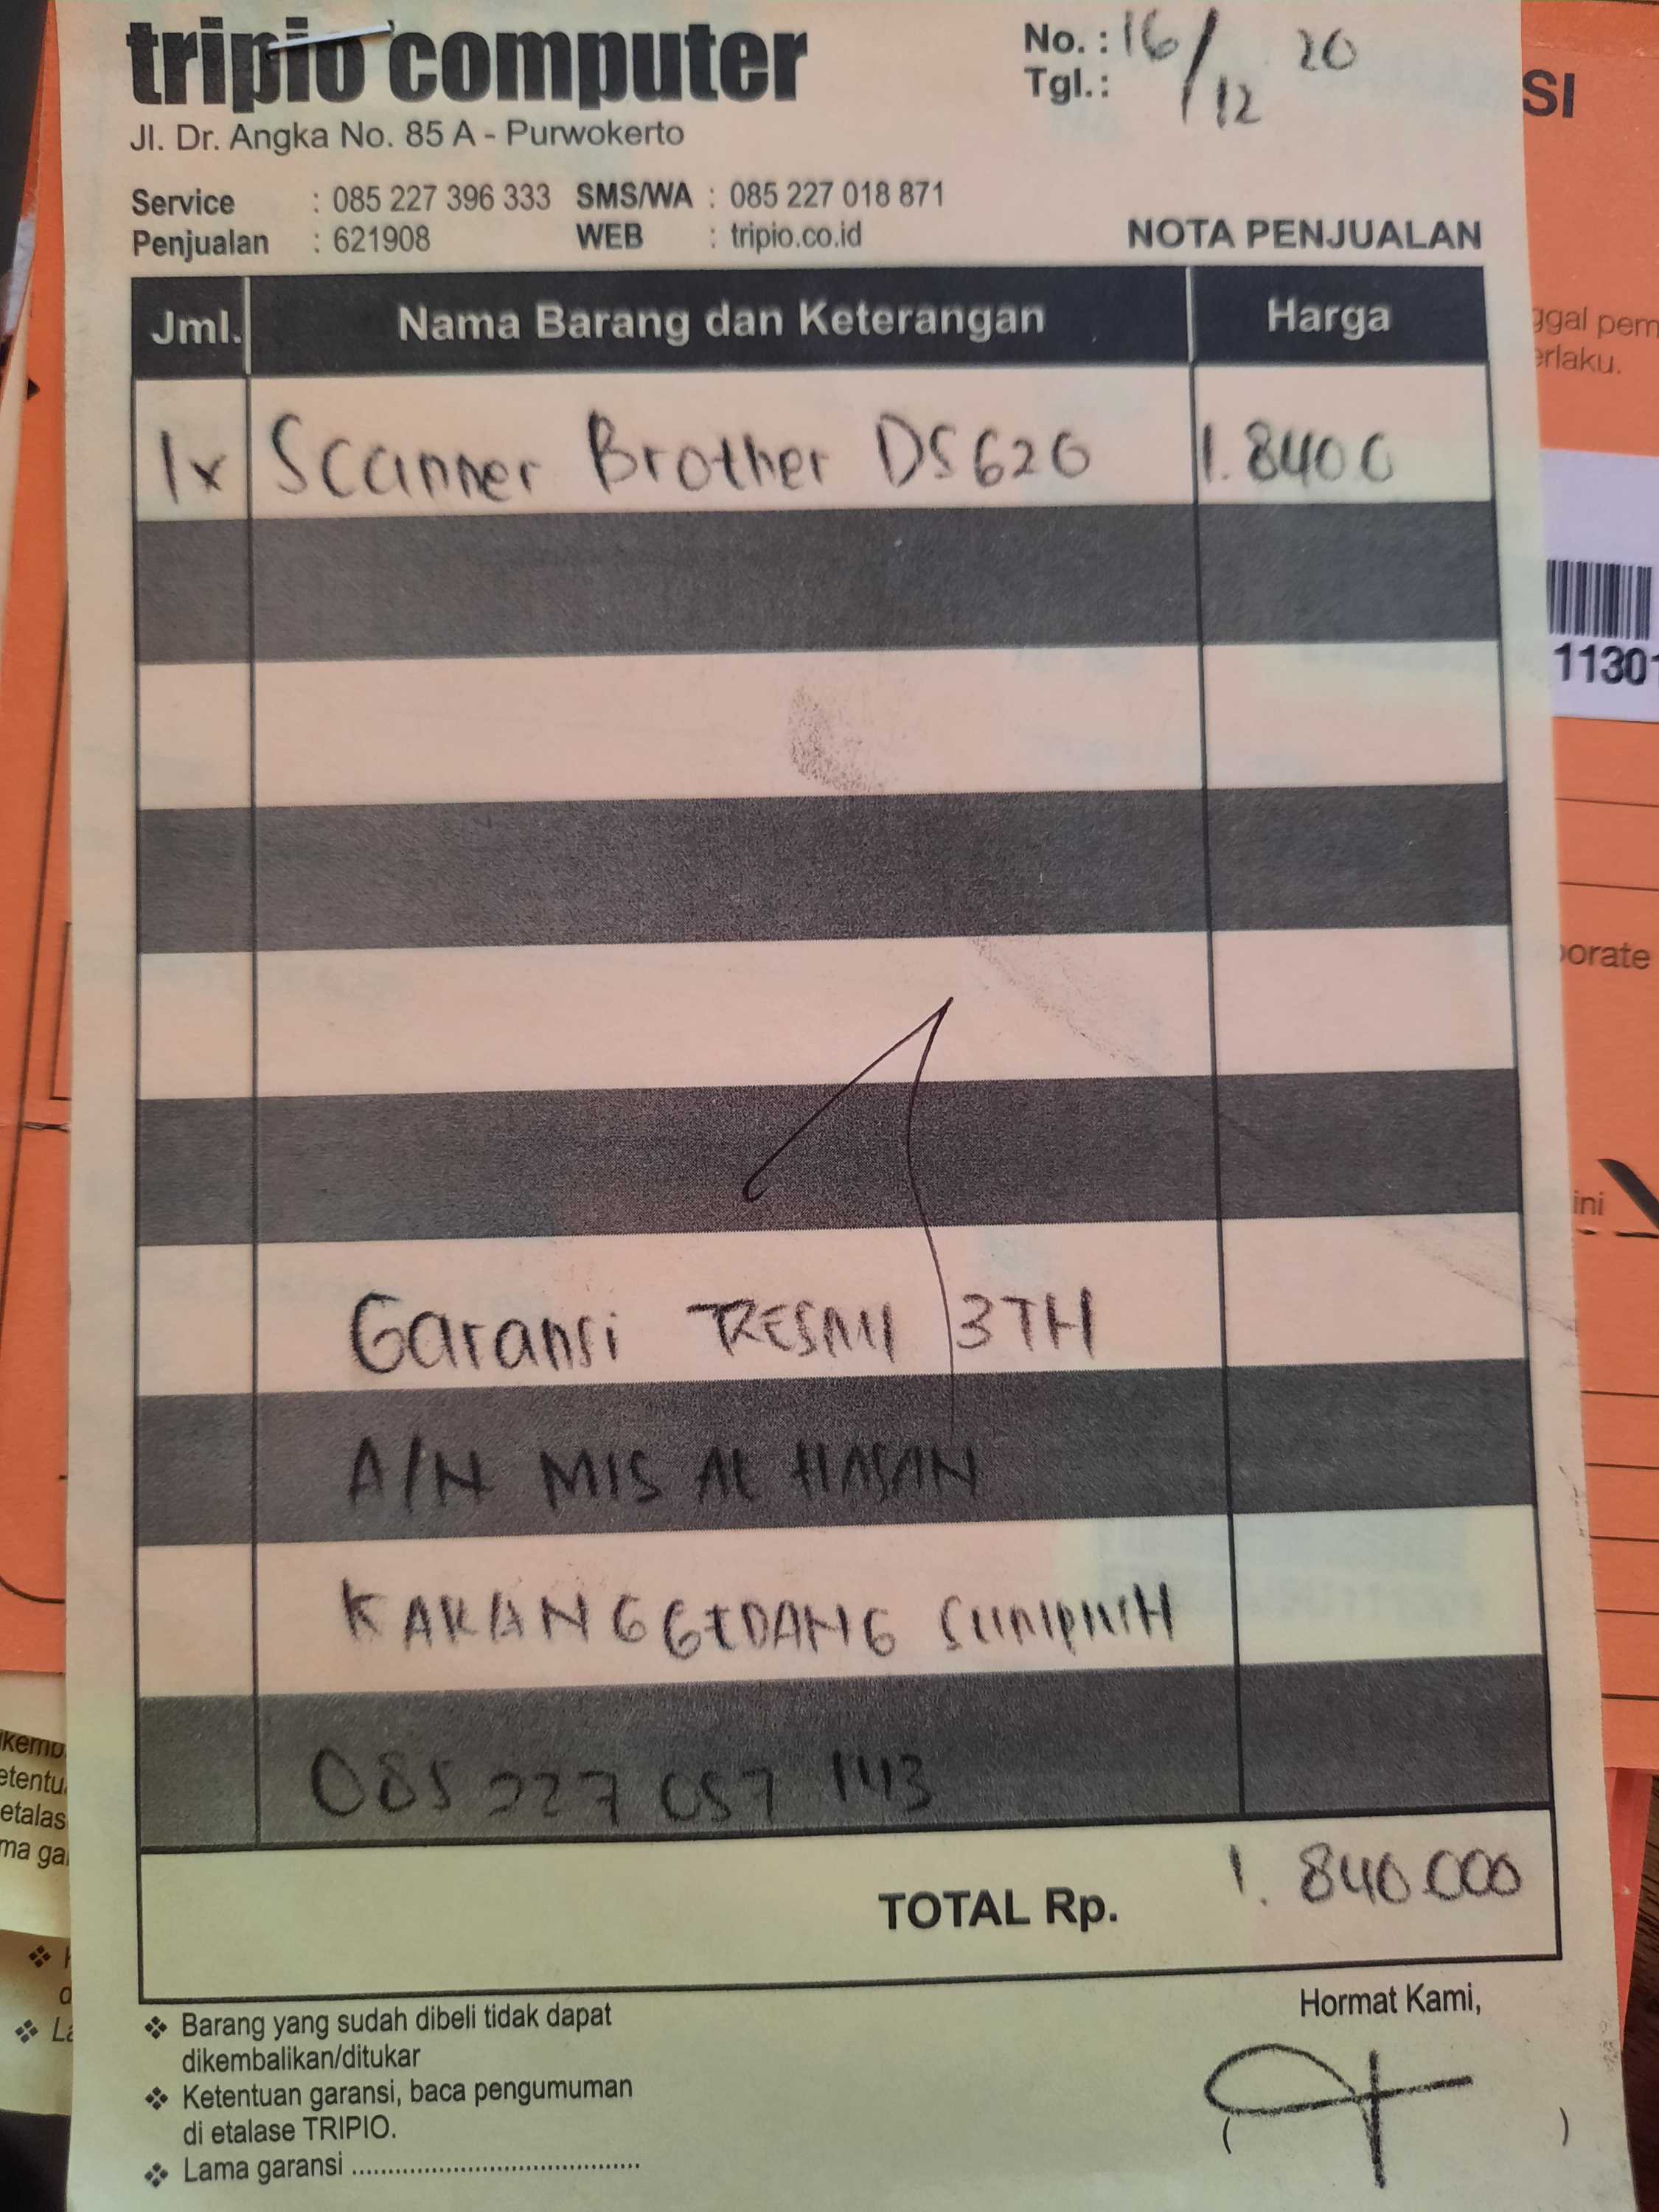 tripio computer
Jl. Dr. Angka No. 85 A - Purwokerto
No. : 16/12 20
Tgl. :
Service : 085 227 396 333 SMS/WA : 085 227 018 871
Penjualan : 621908 WEB : tripio.co.id
NOTA PENJUALAN
Jml. Nama Barang dan Keterangan Harga
1x Scanner Brother DS620 1.8400
Garansi RESMI 3TH
A/N MIS AL HASAN
KARANGGEDANG SUMPIUH
085 227 057 143
TOTAL Rp. 1.840.000
Hormat Kami,
❖ Barang yang sudah dibeli tidak dapat
dikembalikan/ditukar
❖ Ketentuan garansi, baca pengumuman
di etalase TRIPIO.
❖ Lama garansi ........................................
( )
SI
ggal pem
erlaku.
11301
orate
ini
ikemb
etentu
etalas
ma ga